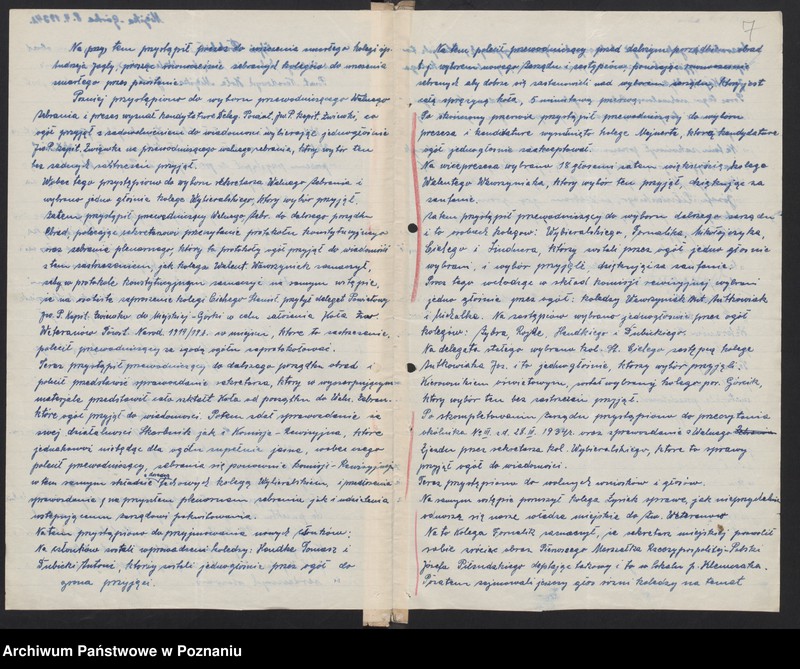 Na przy tem przystąpił prezes do uczczenia zmarłego kolegi
Jagły, prosząc równocześnie zebranych kolegów do uczczenia
zmarłego przez powstanie.
Poczem przystąpiono do wyboru przewodniczącego Walnego
Zebrania i prezes wysunął kandydaturę Deleg. Powiat. Jw. P. Kapit. Żwirski, co
ogół przyjął z zadowoleniem do wiadomości wybierając jednogłośnie
Jw. P. Kapit. na przewodniczącego walnego zebrania, który wybór ten
bez żadnych zastrzeżeń przyjął.
Wobec tego przystąpiono do wyboru sekretarza Walnego Zebrania i
wybrano jedno głośnie kolegę Wybieralskiego, który wybór przyjął.
Zatem przystąpił przewodniczący Walnego Zebr. do dalszego porządku
Obrad, polecając sekretarzowi przeczytanie protokołu konstytucyjnego
oraz zebrania plenarnego, który to protokoły ogół przyjął do wiadomości
z tem zastrzeżeniem, jak kolega Walent. Wawrzyniak zaznaczył,
żeby w protokole konstytucyjnym zaznaczyć na samym wstępie,
że na skutek zaproszenia kolegi Cielego Stanisł. przybył delegat Powiatowy
Jw. P. Kapit. do Miejskiej-Górki w celu założenia Koła Zw.
Weteranów Powst. Narod. 1914/19 r. w miejscu, które to zastrzeżenie,
polecił przewodniczący za zgodą ogółu zaprotokołować.
Teraz przystąpił przewodniczący do dalszego porządku obrad i
polecił przedstawić sprawozdanie sekretarza, który w wyczerpującym
materjale przedstawił cały rozkład Koła od początku do Waln. Zebran.
które ogół przyjął do wiadomości. Potem zdał sprawozdanie ze
swej działalności Skarbnik jak i Komisja-Rewizyjna, które
jednakowoż nie będąc dla ogółu zupełnie jasne, wobec czego
polecił przewodniczący, zebrania się ponownie Komisji-Rewizyjnej
w tem samym składzie i dodano fachowych kolegą Wybieralskiem, i podanie
sprawozdania na przyszłem plenarnem zebraniu jak i udzielenia
ustępującemu zarządowi pokwitowania.
Na tem przystąpiono do przyjmowania nowych członków:
Na członków zostali wprowadzeni koledzy: Handke Tomasz i
Dubicki Antoni, którzy zostali jednogłośnie przez ogół do
grona przyjęci.
7
Na tem polecił przewodniczący przed dalszym porządkiem obrad
t. j. wyborem nowego Zarządu i zastępców, pouczając równocześnie
zebranych aby dobrze się zastanowili nad wyborem zarządu, który jest
całą sprężyną koła, 5 minutową przerwę.
Po skończonej przerwie przystąpił przewodniczący do wyboru
prezesa i kandydaturę wysunięto kolegę Majnerta, którą kandydaturę
ogół jednogłośnie zaakceptował.
Na wiceprezesa wybrano 18 głosami zatem większością, kolegę
Walentego Wawrzyniaka, który wybór ten przyjął, dziękując za
zaufanie.
Zatem przystąpił przewodniczący do wyboru dalszego zarządu
i to w osobach kolegów: Wybieralskiego, Tomalika, Mikołajczyka,
Cielego i Lindnera, którzy zostali przez ogół jedno głośnie
wybrani, i wybór przyjęli, dziękując za zaufanie.
Poza tego wchodzą w skład komisji rewizyjnej wybrani
jedno głośnie przez ogół: koledzy Wawrzyniak Wik. Ratkowiak
i Michałka. Na zastępców wybrano jednogłośnie przez ogół
kolegów: Sybra, Rojka, Handkiego i Dubickiego.
Na delegata stałego wybrano kol. St. Cielego zastępcą kolegę
Jos. i to jednogłośnie, którzy wybór przyjęli.
Kierownikiem oświatowym, został wybrany kolega por. Górnik,
który wybór ten bez zastrzeżeń przyjął.
Po skompletowaniu Zarządu przystąpiono do przeczytania
okólnika № II z d. 28. II. 1934 r. oraz sprawozdania z Walnego
Zjazdu przez sekretarza kol. Wybieralskiego, które to sprawy
przyjął ogół do wiadomości.
Teraz przystąpiono do wolnych wniosków i głosów.
Na samym wstępie poruszył kolega Łysiak sprawę, jak nieprzychylnie
odnoszą się nasze władze miejskie do Zw. Weteranów.
Na to kolega Tomalik zaznaczył, że sekretarz miejski pozwolił
sobie zdjąć obraz Pierwszego Marszałka Rzeczypospolitej-Polski
Józefa Piłsudskiego depcząc takowy i to w lokalu p. Klemczaka.
Pozatem zajmowali jeszcze głos różni koledzy na temat
Archiwum Państwowe w Poznaniu